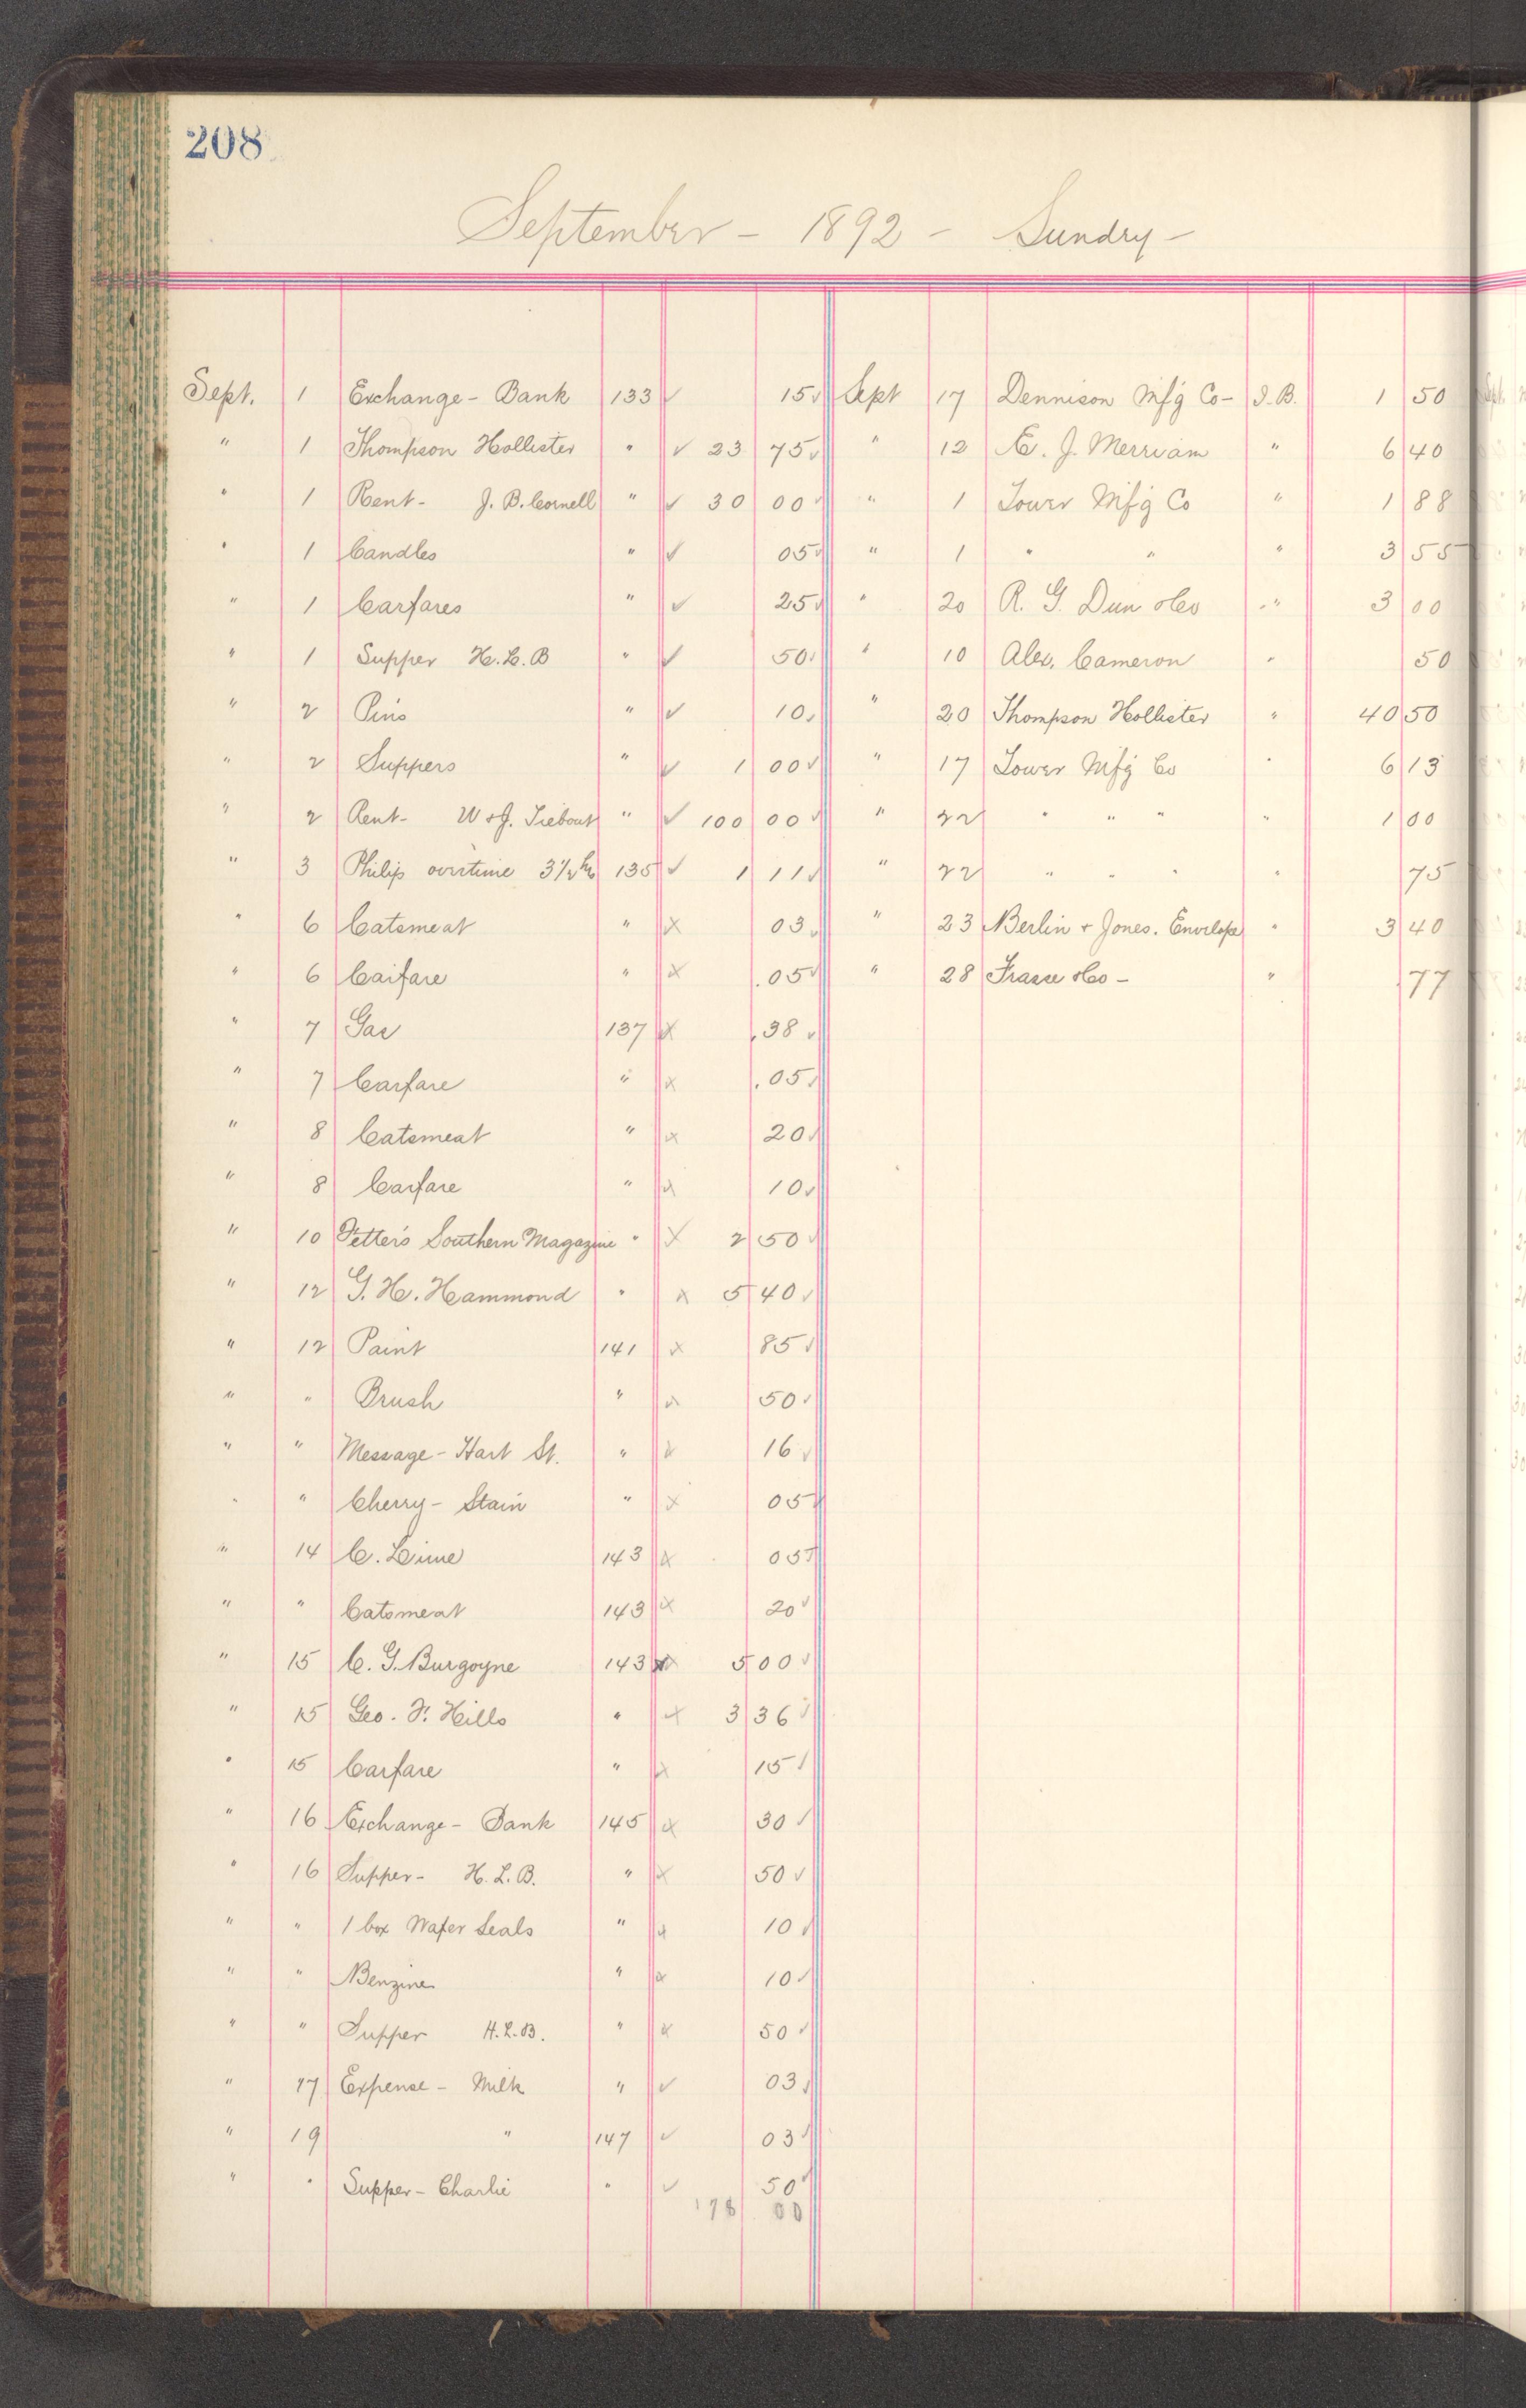 208
September - 1892 - Sundry -
Sept. 1 Exchange - Bank 133 ✓ 15 ✓
" 1 Thompson Hollister " ✓ 23 75 ✓
" 1 Rent - J. B. Cornell " ✓ 30 00 ✓
" 1 Candles " ✓ 05 ✓
" 1 Carfares " ✓ 25 ✓
" 1 Supper H. L. B " ✓ 50 ✓
" 2 Pins " ✓ 10 ✓
" 2 Suppers " ✓ 1 00 ✓
" 2 Rent - W & J. Tiebout " ✓ 100 00 ✓
" 3 Philip overtime 3 1/2 hrs 135 ✓ 1 11 ✓
" 6 Catsmeat " x 03 ✓
" 6 Carfare " x .05 ✓
" 7 Gas 137 x .38 ✓
" 7 Carfare " x .05 ✓
" 8 Catsmeat " x 20 ✓
" 8 Carfare " x 10 ✓
" 10 Fetter's Southern Magazine " x 2 50 ✓
" 12 G. H. Hammond " x 5 40 ✓
" 12 Paint 141 x 85 ✓
" " Brush " x 50 ✓
" " Message - Hart St. " x 16 ✓
" " Cherry - Stain " x 05 ✓
" 14 C. Lime 143 x 05 ✓
" " Catsmeat 143 x 20 ✓
" 15 C. G. Burgoyne 143 x 5 00 ✓
" 15 Geo. F. Hills " x 3 36 ✓
" 15 Carfare " x 15 ✓
" 16 Exchange - Bank 145 x 30 ✓
" 16 Supper - H. L. B. " x 50 ✓
" " 1 box Wafer Seals " x 10 ✓
" " Benzine " x 10 ✓
" " Supper H. L. B. " x 50 ✓
" 17 Expense - Milk " ✓ 03 ✓
" 19 " 147 ✓ 03 ✓
" " Supper - Charlie " ✓ 50 ✓
178 00
Sept 17 Dennison Mfg Co - I. B. 1 50
" 12 E. J. Merriam " 6 40
" 1 Tower Mfg Co " 1 88
" 1 " " " 3 55
" 20 R. G. Dun & Co " 3 00
" 10 Alex. Cameron " 50
" 20 Thompson Hollister " 40 50
" 17 Tower Mfg Co " 6 13
" 22 " " " " 1 00
" 22 " " " " 75
" 23 Berlin & Jones. Envelope " 3 40
" 28 Frasse & Co - " 77